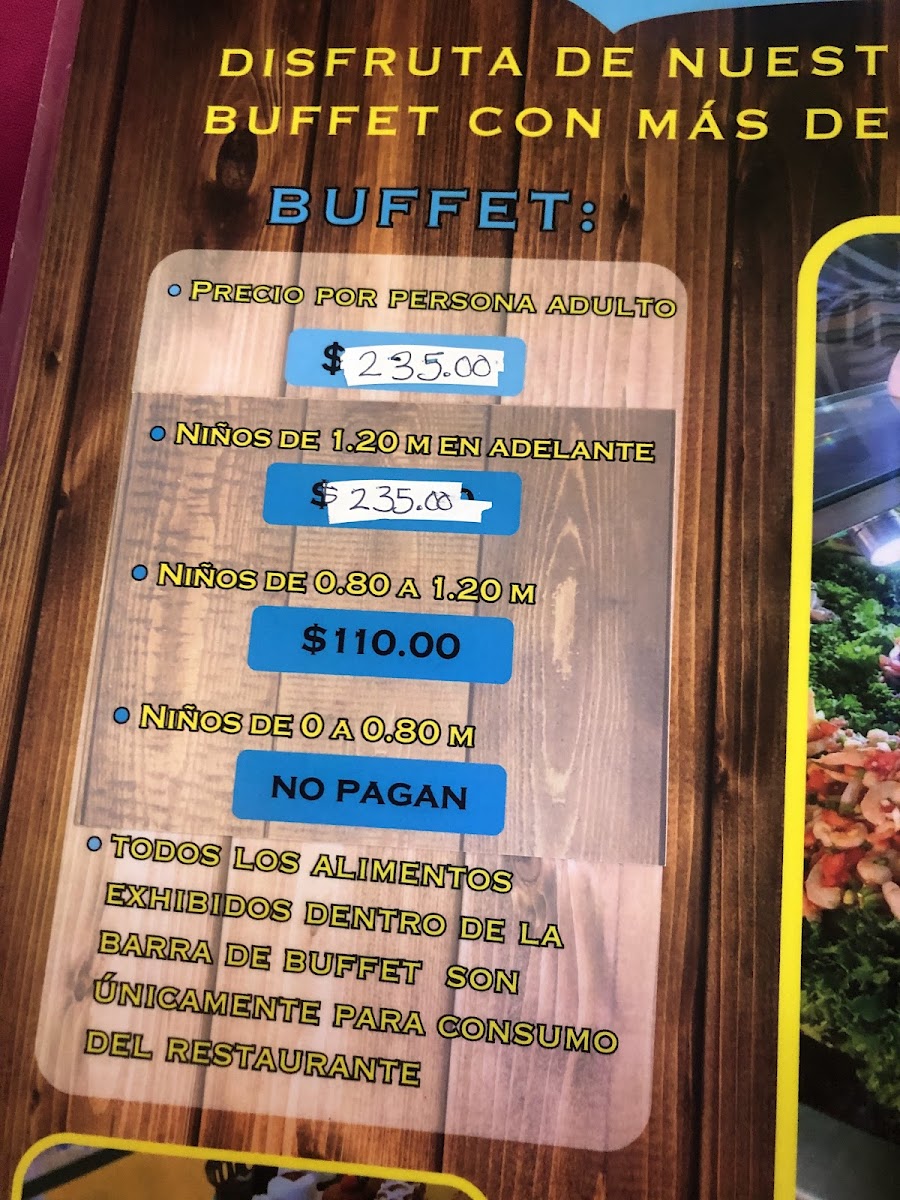 DISFRUTA DE NUEST
BUFFET CON MÁS DE
BUFFET:
• PRECIO POR PERSONA ADULTO
$ 235.00
• NIÑOS DE 1.20 M EN ADELANTE
$ 235.00
• NIÑOS DE 0.80 A 1.20 M
$110.00
• NIÑOS DE 0 A 0.80 M
NO PAGAN
• TODOS LOS ALIMENTOS
EXHIBIDOS DENTRO DE LA
BARRA DE BUFFET SON
ÚNICAMENTE PARA CONSUMO
DEL RESTAURANTE